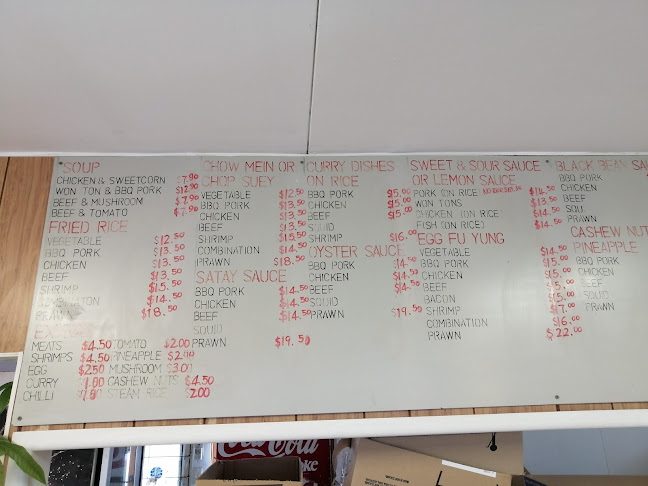 SOUP
CHICKEN & SWEETCORN $7.90
WON TON & BBQ PORK $12.90
BEEF & MUSHROOM $7.90
BEEF & TOMATO $7.90
FRIED RICE
VEGETABLE $12.50
BBQ PORK $13.50
CHICKEN $13.50
BEEF $13.50
SHRIMP $15.50
COMBINATION $14.50
PRAWN $18.50
MEATS $4.50 TOMATO $2.00
SHRIMPS $4.50 PINEAPPLE $2.00
EGG $2.50 MUSHROOM $3.00
CURRY $1.00 CASHEW NUTS $4.50
CHILLI STEAM RICE $2.00
CHOW MEIN OR
CHOP SUEY
VEGETABLE $12.50
BBQ PORK $13.50
CHICKEN $13.50
BEEF $13.50
SHRIMP $15.50
COMBINATION $14.50
PRAWN $18.50
SATAY SAUCE
BBQ PORK $14.50
CHICKEN $14.50
BEEF $14.50
SQUID
PRAWN $19.50
CURRY DISHES
ON RICE
BBQ PORK $15.00
CHICKEN $15.00
BEEF $15.00
SQUID
SHRIMP $16.00
OYSTER SAUCE
BBQ PORK $14.50
CHICKEN $14.50
BEEF $14.50
SQUID
PRAWN $19.50
SWEET & SOUR SAUCE
OR LEMON SAUCE
PORK (ON RICE) $14.50
WON TONS $13.50
CHICKEN (ON RICE $14.50
FISH (ON RICE) $14.50
EGG FU YUNG
VEGETABLE $14.50
BBQ PORK $15.00
CHICKEN $15.00
BEEF
BACON
SHRIMP
COMBINATION $16.00
PRAWN $22.00
BLACK BEAN
BBQ PORK
CHICKEN
BEEF
PRAWN
CASHEW NUT
PINEAPPLE
BBQ PORK
CHICKEN
BEEF
SQUID
PRAWN
Coca-Cola